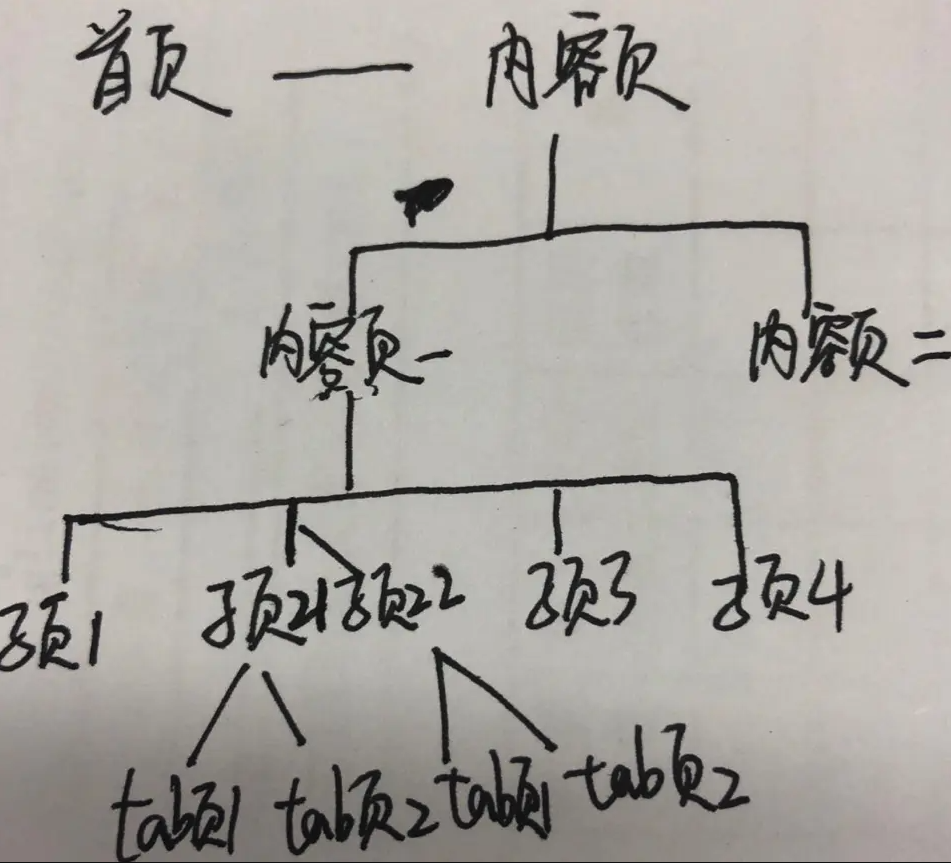 首页 — 内容页
内容页一 内容页二
子页1 子页21 子页22 子页3 子页4
tab页1 tab页2 tab页1 tab页2